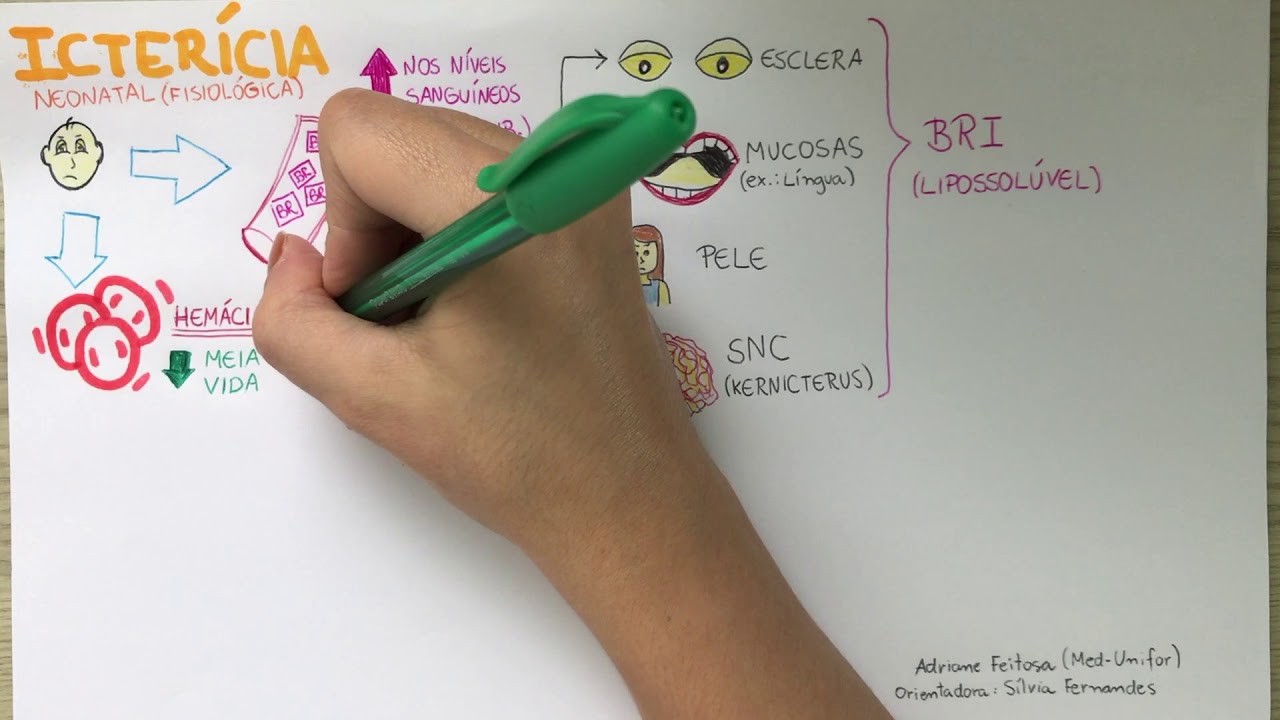 ICTERÍCIA
NEONATAL (FISIOLÓGICA)
NOS NÍVEIS
SANGUÍNEOS
BR
BR
BR
ESCLERA
MUCOSAS
(ex.: Língua)
PELE
SNC
(KERNICTERUS)
BRI
(LIPOSSOLÚVEL)
MEIA
VIDA
Adriane Feitosa (Med-Unifor)
Orientadora: Sílvia Fernandes